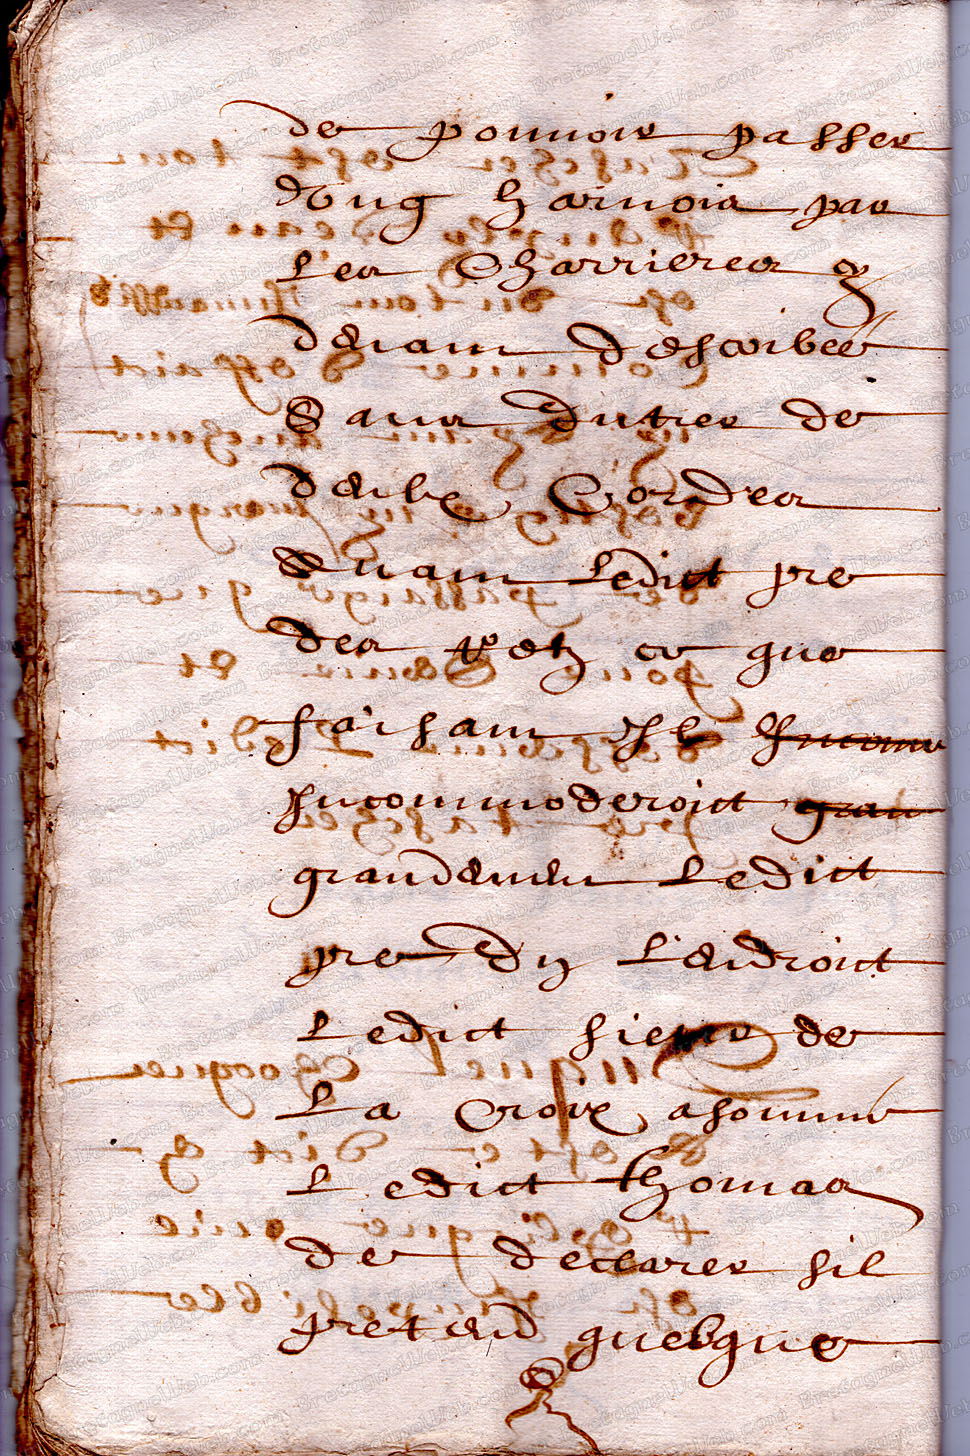 de pouuoir passer
d'ung harnois par
les Charrieres cy
deuant describée
Sans Autres de
deulx Cordes
Auant Ledict pre
des ce que
faisant Il Incomo
Incommoderoict gran
grandement Ledict
pre En L'endroict
Ledict sieur de
La Croix a somme
Ledict thomas
de declarer sil
pretend quelque